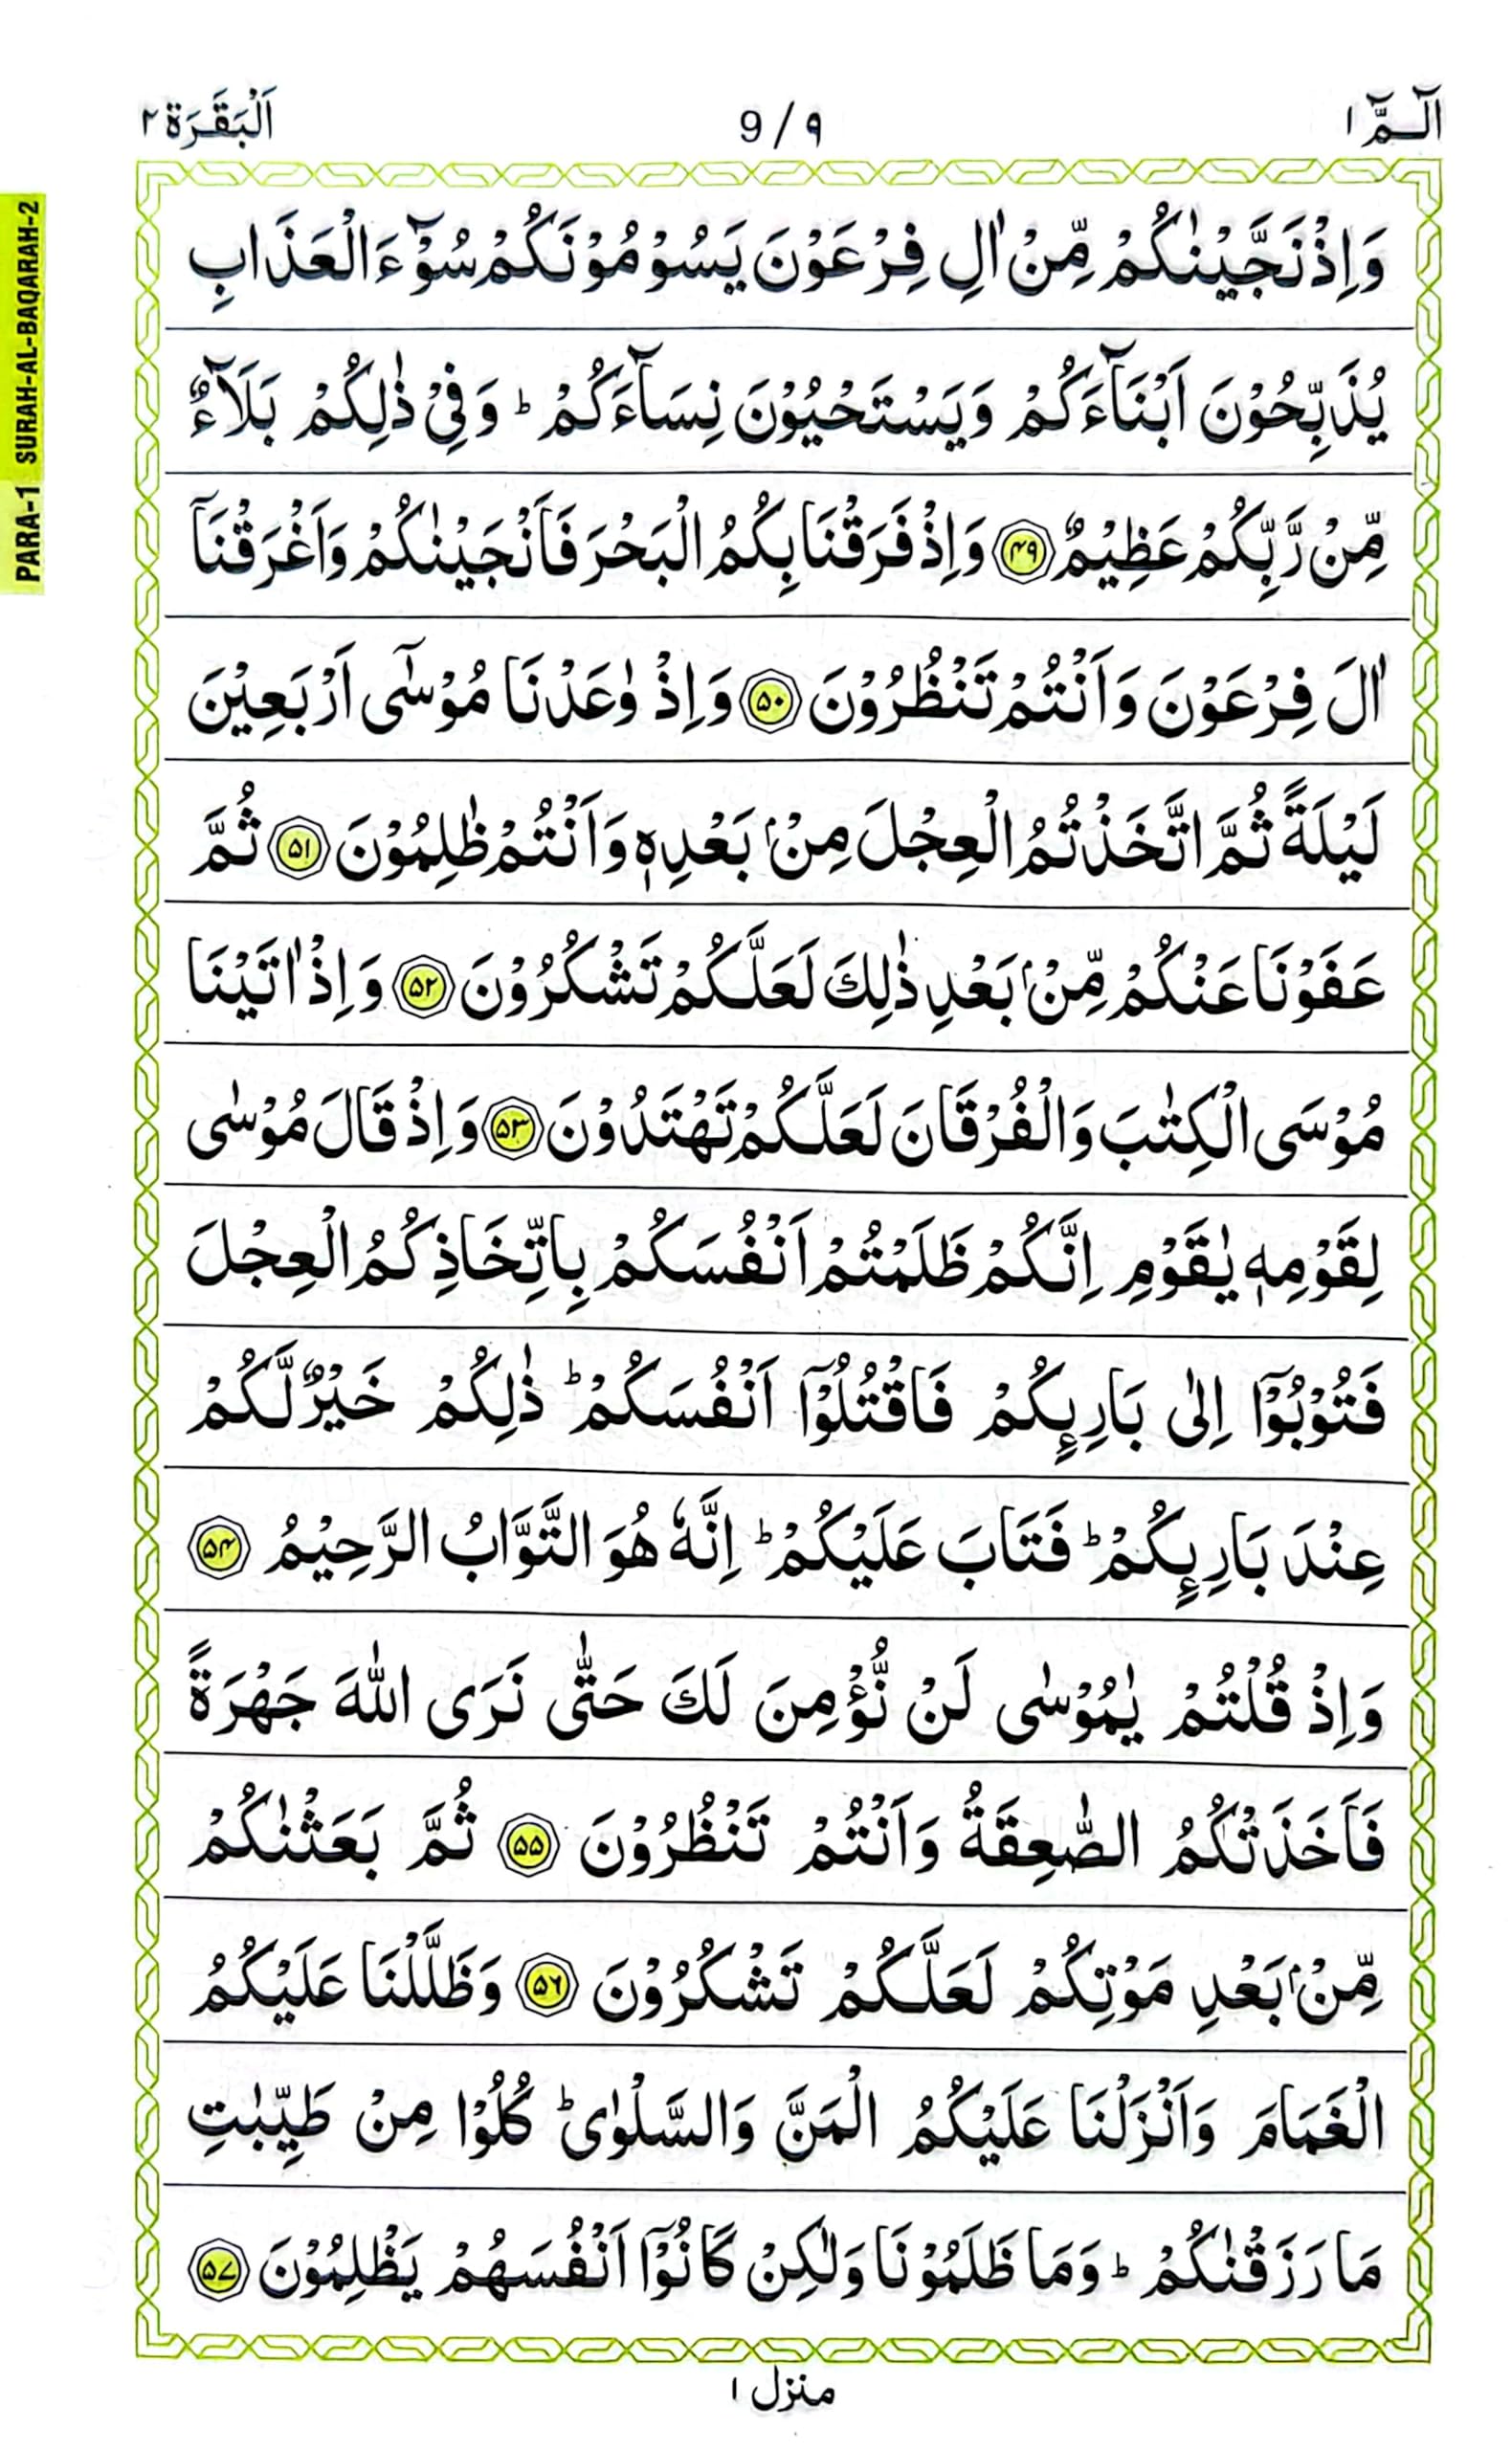 الٓـمّٓ ۱
9/۹
اَلْبَقَرَة ۲
PARA-1 SURAH-AL-BAQARAH-2
وَاِذْ نَجَّيْنٰكُمْ مِّنْ اٰلِ فِرْعَوْنَ يَسُوْمُوْنَكُمْ سُوْٓءَ الْعَذَابِ
يُذَبِّحُوْنَ اَبْنَآءَكُمْ وَيَسْتَحْيُوْنَ نِسَآءَكُمْ ؕ وَفِيْ ذٰلِكُمْ بَلَآءٌ
مِّنْ رَّبِّكُمْ عَظِيْمٌ ۴۹ وَاِذْ فَرَقْنَا بِكُمُ الْبَحْرَ فَاَنْجَيْنٰكُمْ وَاَغْرَقْنَآ
اٰلَ فِرْعَوْنَ وَاَنْتُمْ تَنْظُرُوْنَ ۵۰ وَاِذْ وٰعَدْنَا مُوْسٰٓى اَرْبَعِيْنَ
لَيْلَةً ثُمَّ اتَّخَذْتُمُ الْعِجْلَ مِنْۢ بَعْدِهٖ وَاَنْتُمْ ظٰلِمُوْنَ ۵۱ ثُمَّ
عَفَوْنَا عَنْكُمْ مِّنْۢ بَعْدِ ذٰلِكَ لَعَلَّكُمْ تَشْكُرُوْنَ ۵۲ وَاِذْ اٰتَيْنَا
مُوْسَى الْكِتٰبَ وَالْفُرْقَانَ لَعَلَّكُمْ تَهْتَدُوْنَ ۵۳ وَاِذْ قَالَ مُوْسٰى
لِقَوْمِهٖ يٰقَوْمِ اِنَّكُمْ ظَلَمْتُمْ اَنْفُسَكُمْ بِاتِّخَاذِكُمُ الْعِجْلَ
فَتُوْبُوْٓا اِلٰى بَارِىِٕكُمْ فَاقْتُلُوْٓا اَنْفُسَكُمْ ؕ ذٰلِكُمْ خَيْرٌ لَّكُمْ
عِنْدَ بَارِىِٕكُمْ ؕ فَتَابَ عَلَيْكُمْ ؕ اِنَّهٗ هُوَ التَّوَّابُ الرَّحِيْمُ ۵۴
وَاِذْ قُلْتُمْ يٰمُوْسٰى لَنْ نُّؤْمِنَ لَكَ حَتّٰى نَرَى اللّٰهَ جَهْرَةً
فَاَخَذَتْكُمُ الصّٰعِقَةُ وَاَنْتُمْ تَنْظُرُوْنَ ۵۵ ثُمَّ بَعَثْنٰكُمْ
مِّنْۢ بَعْدِ مَوْتِكُمْ لَعَلَّكُمْ تَشْكُرُوْنَ ۵۶ وَظَلَّلْنَا عَلَيْكُمُ
الْغَمَامَ وَاَنْزَلْنَا عَلَيْكُمُ الْمَنَّ وَالسَّلْوٰى ؕ كُلُوْا مِنْ طَيِّبٰتِ
مَا رَزَقْنٰكُمْ ؕ وَمَا ظَلَمُوْنَا وَلٰكِنْ كَانُوْٓا اَنْفُسَهُمْ يَظْلِمُوْنَ ۵۷
منزل ۱